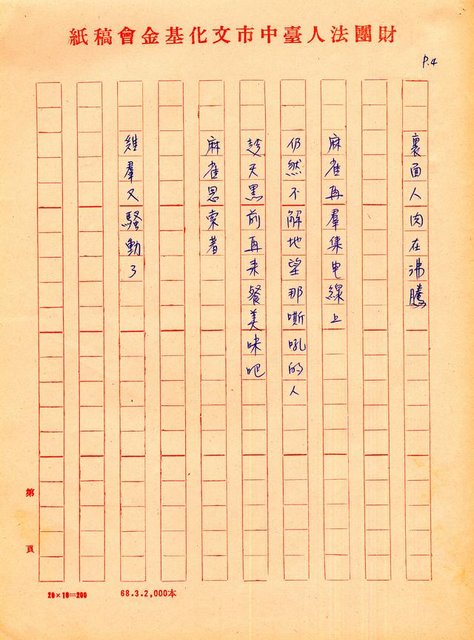 財團法人臺中市文化基金會稿紙
P.4
裏面人肉在沸騰
麻雀再羣集电線上
仍然不解地望那嘶吼的人
趁天黑前再来餐美味吧
麻雀思索着
雞羣又騷動了
第 頁
20×10=200
68.3.2,000本